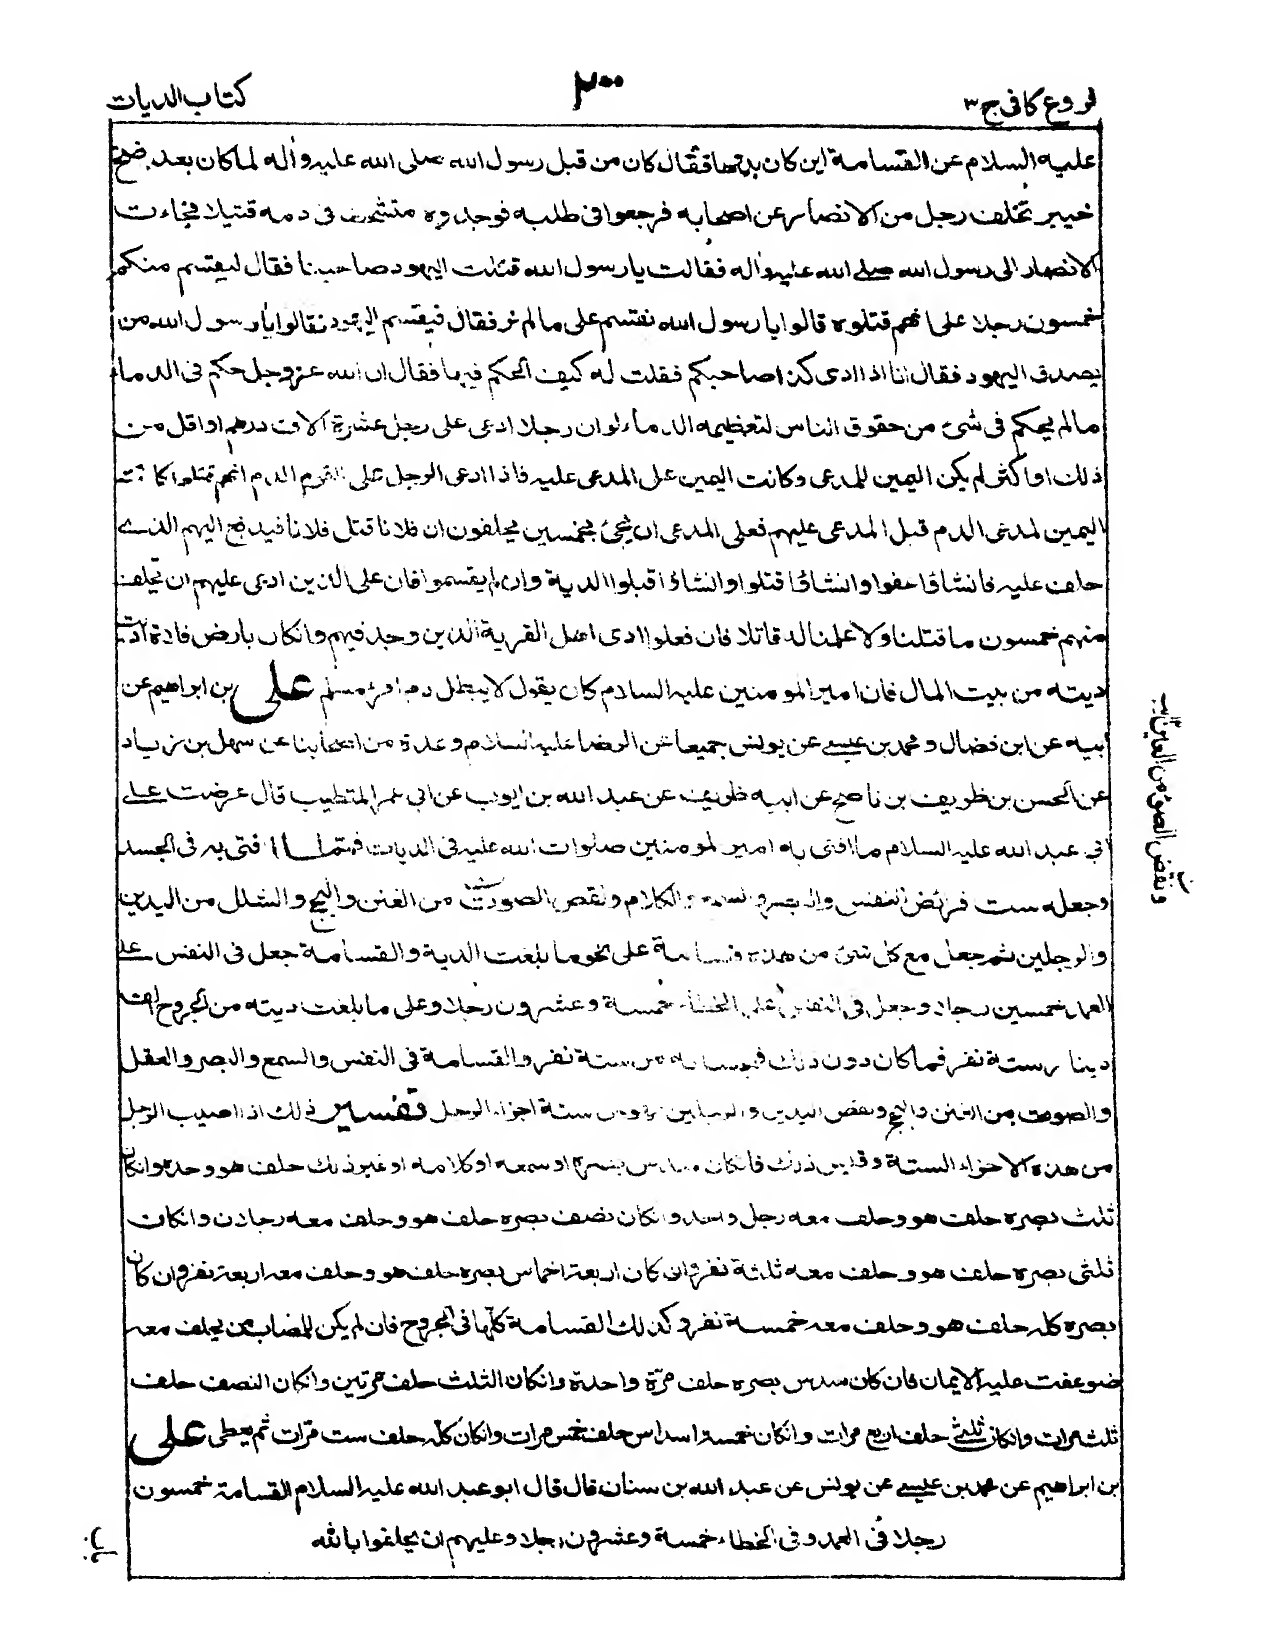 فروع كافى ج٣
٢٠٠
كتاب الديات
عليه السلام عن القسامة اين كان بدئها فقال كان من قبل رسول الله صلى الله عليه وأله لما كان بعد فتح
خيبر تخلف رجل من الانصار عن اصحابه فرجعوا فى طلبه فوجدوه متشحطا فى دمه قتيلا فجاءت
الانصار الى رسول الله صلى الله عليه وأله فقالت يا رسول الله قتلت اليهود صاحبنا فقال ليقسم منكم
خمسون رجلا على انهم قتلوه قالوا يا رسول الله نقسم على ما لم نر فقال فيقسم اليهود فقالوا يا رسول الله من
يصدق اليهود فقال انا اذا ادى كن اصاحبكم فقلت له كيف الحكم فيها فقال ان الله عز وجل حكم فى الدماء
مالم يحكم فى شئ من حقوق الناس لتعظيمه الدماء لو ان رجلا ادعى على رجل عشرة آلاف درهم او اقل من
ذلك او اكثر لم يكن اليمين للمدعى وكانت اليمين على المدعى عليه فاذا ادعى الرجل على القوم الدم انهم قتلوا كانت
اليمين لمدعى الدم قبل المدعى عليهم فعلى المدعى ان يجئ بخمسين يحلفون ان فلانا قتل فلانا فيدفع اليهم الذى
حلف عليه فانشاؤا عفوا وانشاؤا قتلوا وانشاؤا قبلوا الدية وان لم يقسموا فان على الذين ادعى عليهم ان يحلف
منهم خمسون ما قتلنا ولا علمنا له قاتلا فان فعلوا ادى اهل القرية الذين وجد فيهم وانكان بارض فلاة ادت
ديته من بيت المال فان امير المومنين عليه السلام كان يقول لا يبطل دم امرئ مسلم على بن ابراهيم عن
ابيه عن ابن فضال ومحمد بن عيسى عن يونس جميعا عن الرضا عليه السلام وعدة من اصحابنا عن سهل بن زياد
عن الحسن بن ظريف بن ناصح عن ابيه ظريف عن عبد الله بن ايوب عن ابى عمر المتطيب قال عرضت على
ابى عبد الله عليه السلام ما افتى به امير المومنين صلوات الله عليه فى الديات فمما افتى به فى الجسد
وجعله ست فرائض النفس والبصر والسمع والكلام ونقص الصوت من الغنن والبحح والشلل من اليدين
والرجلين ثم جعل مع كل شئ من هذه قسامة على نحو ما بلغت الدية والقسامة جعل فى النفس على
العمد خمسين رجلا وجعل فى النفس على الخطاء خمسة وعشرون رجلا وعلى ما بلغت ديته من الجروح الف
دينار ستة نفر فما كان دون ذلك فبحسابه من ستة نفر والقسامة فى النفس والسمع والبصر والعقل
والصوت من الغنن والبحح ونقص اليدين والرجلين فهو من ستة اجزاء الرجل تفسير ذلك اذا اصيب الرجل
من هذه الاجزاء الستة وقايس ذلك فانكان سدس بصره او سمعه او كلامه او غير ذلك حلف هو وحده وانكان
ثلث بصره حلف هو وحلف معه رجل واحد وانكان نصف بصره حلف هو وحلف معه رجلان وانكان
ثلثى بصره حلف هو وحلف معه ثلثة نفر وان كان اربعة اخماس بصره حلف هو وحلف معه اربعة نفر وان كان
بصره كله حلف هو وحلف معه خمسة نفر وكذلك القسامة كلها فى الجروح فان لم يكن للمصاب من يحلف معه
ضوعفت عليه الايمان فان كان سدس بصره حلف مرة واحدة وانكان الثلث حلف مرتين وانكان النصف حلف
ثلث مرات وانكان ثلثى حلف اربع مرات وانكان خمسة اسداس حلف خمس مرات وانكان كله حلف ست مرات ثم يعطى على
بن ابراهيم عن محمد بن عيسى عن يونس عن عبد الله بن سنان قال قال ابو عبد الله عليه السلام القسامة خمسون
رجلا فى العمد وفى الخطاء خمسة وعشرون رجلا وعليهم ان يحلفوا بالله
ونقص الصوت من العين